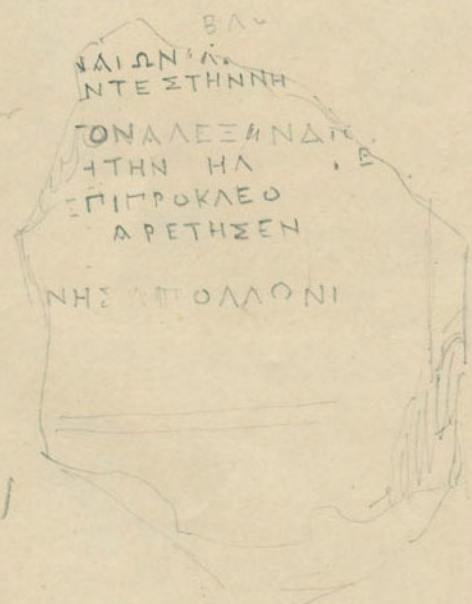 ΒΛ
ΝΑΙΩΝΑ
ΝΤΕΣΤΗΝΝΗ
ΤΟΝΑΛΕΞΑΝΔΡ
ΗΤΗΝ ΗΛ
ΕΠΙΠΡΟΚΛΕΟ
ΑΡΕΤΗΣΕΝ
ΝΗΣ ΑΠΟΛΛΩΝΙ